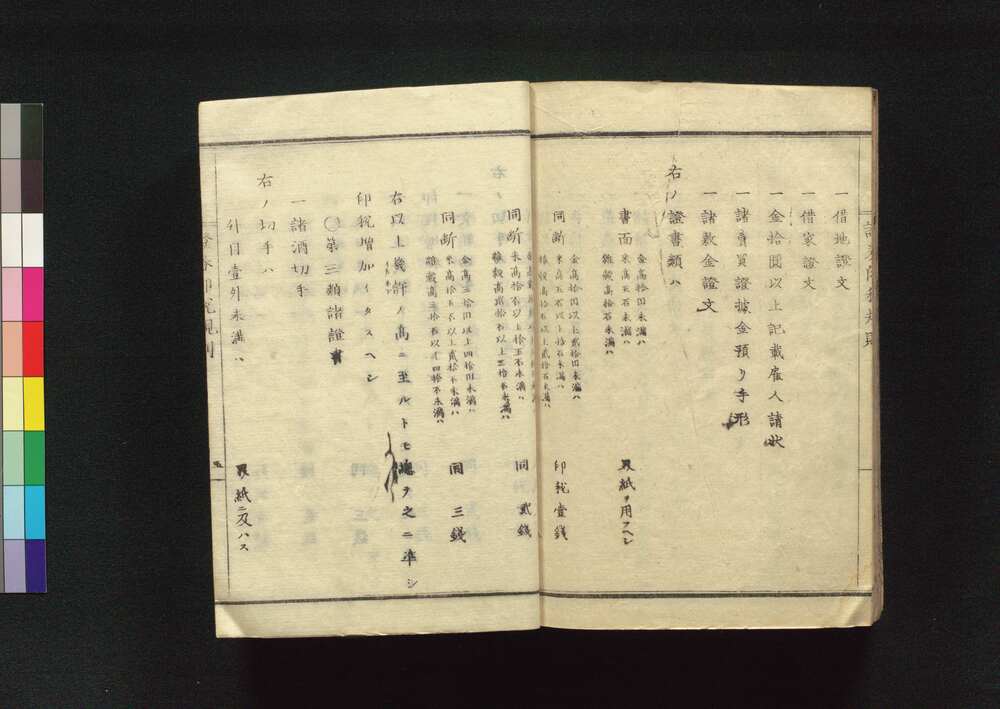 一借地證文
一借家證文
一金拾圓以上記載雇人請狀
一諸賣買證據金預リ手形
一諸敷金證文
右ノ證書類ハ
書面
金高拾円未滿ハ
米高五石未滿ハ
雜穀高拾石未滿ハ
界紙ヲ用フヘシ
同断
金高拾円以上貳拾円未滿ハ
米高五石以上拾石未滿ハ
雜穀高拾石以上貳拾石未滿ハ
印税壹錢
同断
米高拾石以上拾五石未滿ハ
雜穀高貳拾石以上三拾石未滿ハ
同 貳錢
同断
金高三拾円以上四拾円未滿ハ
米高拾五石以上貳拾石未滿ハ
雜穀高三拾石以上四拾石未滿ハ
同 三錢
右以上幾許ノ高ニ至ルトモ總テ之ニ準シ
印税增加イタスヘシ
〇第三類諸證書
一諸酒切手
右ノ切手ハ
界紙ニ及ハス
五